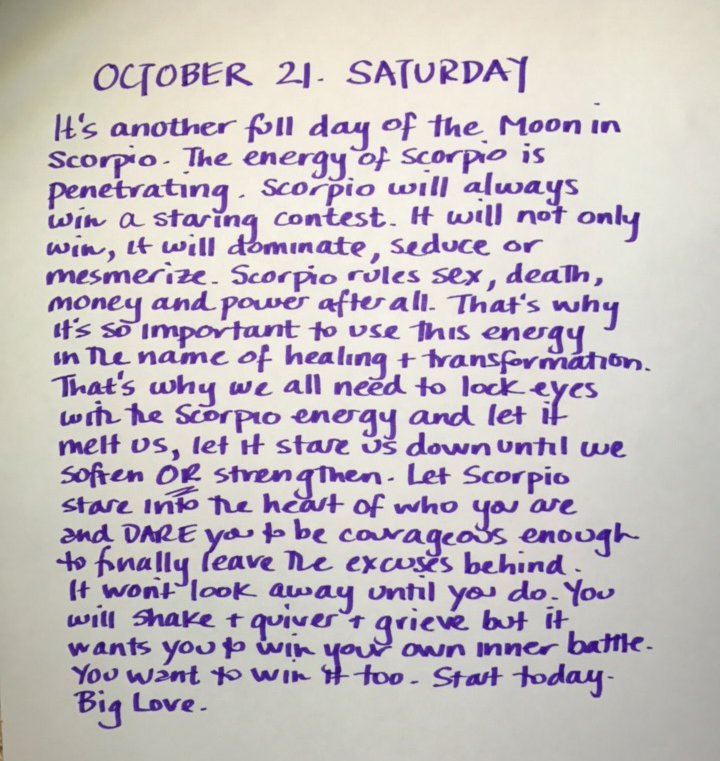 OCTOBER 21. SATURDAY
It's another full day of the Moon in
Scorpio. The energy of Scorpio is
penetrating. Scorpio will always
win a staring contest. It will not only
win, it will dominate, seduce or
mesmerize. Scorpio rules sex, death,
money and power after all. That's why
it's so important to use this energy
in the name of healing + transformation.
That's why we all need to lock eyes
with the Scorpio energy and let it
melt us, let it stare us down until we
soften OR strengthen. Let Scorpio
stare into the heart of who you are
and DARE you to be courageous enough
to finally leave the excuses behind.
It won't look away until you do. You
will shake + quiver + grieve but it
wants you to win your own inner battle.
You want to win it too. Start today.
Big Love.